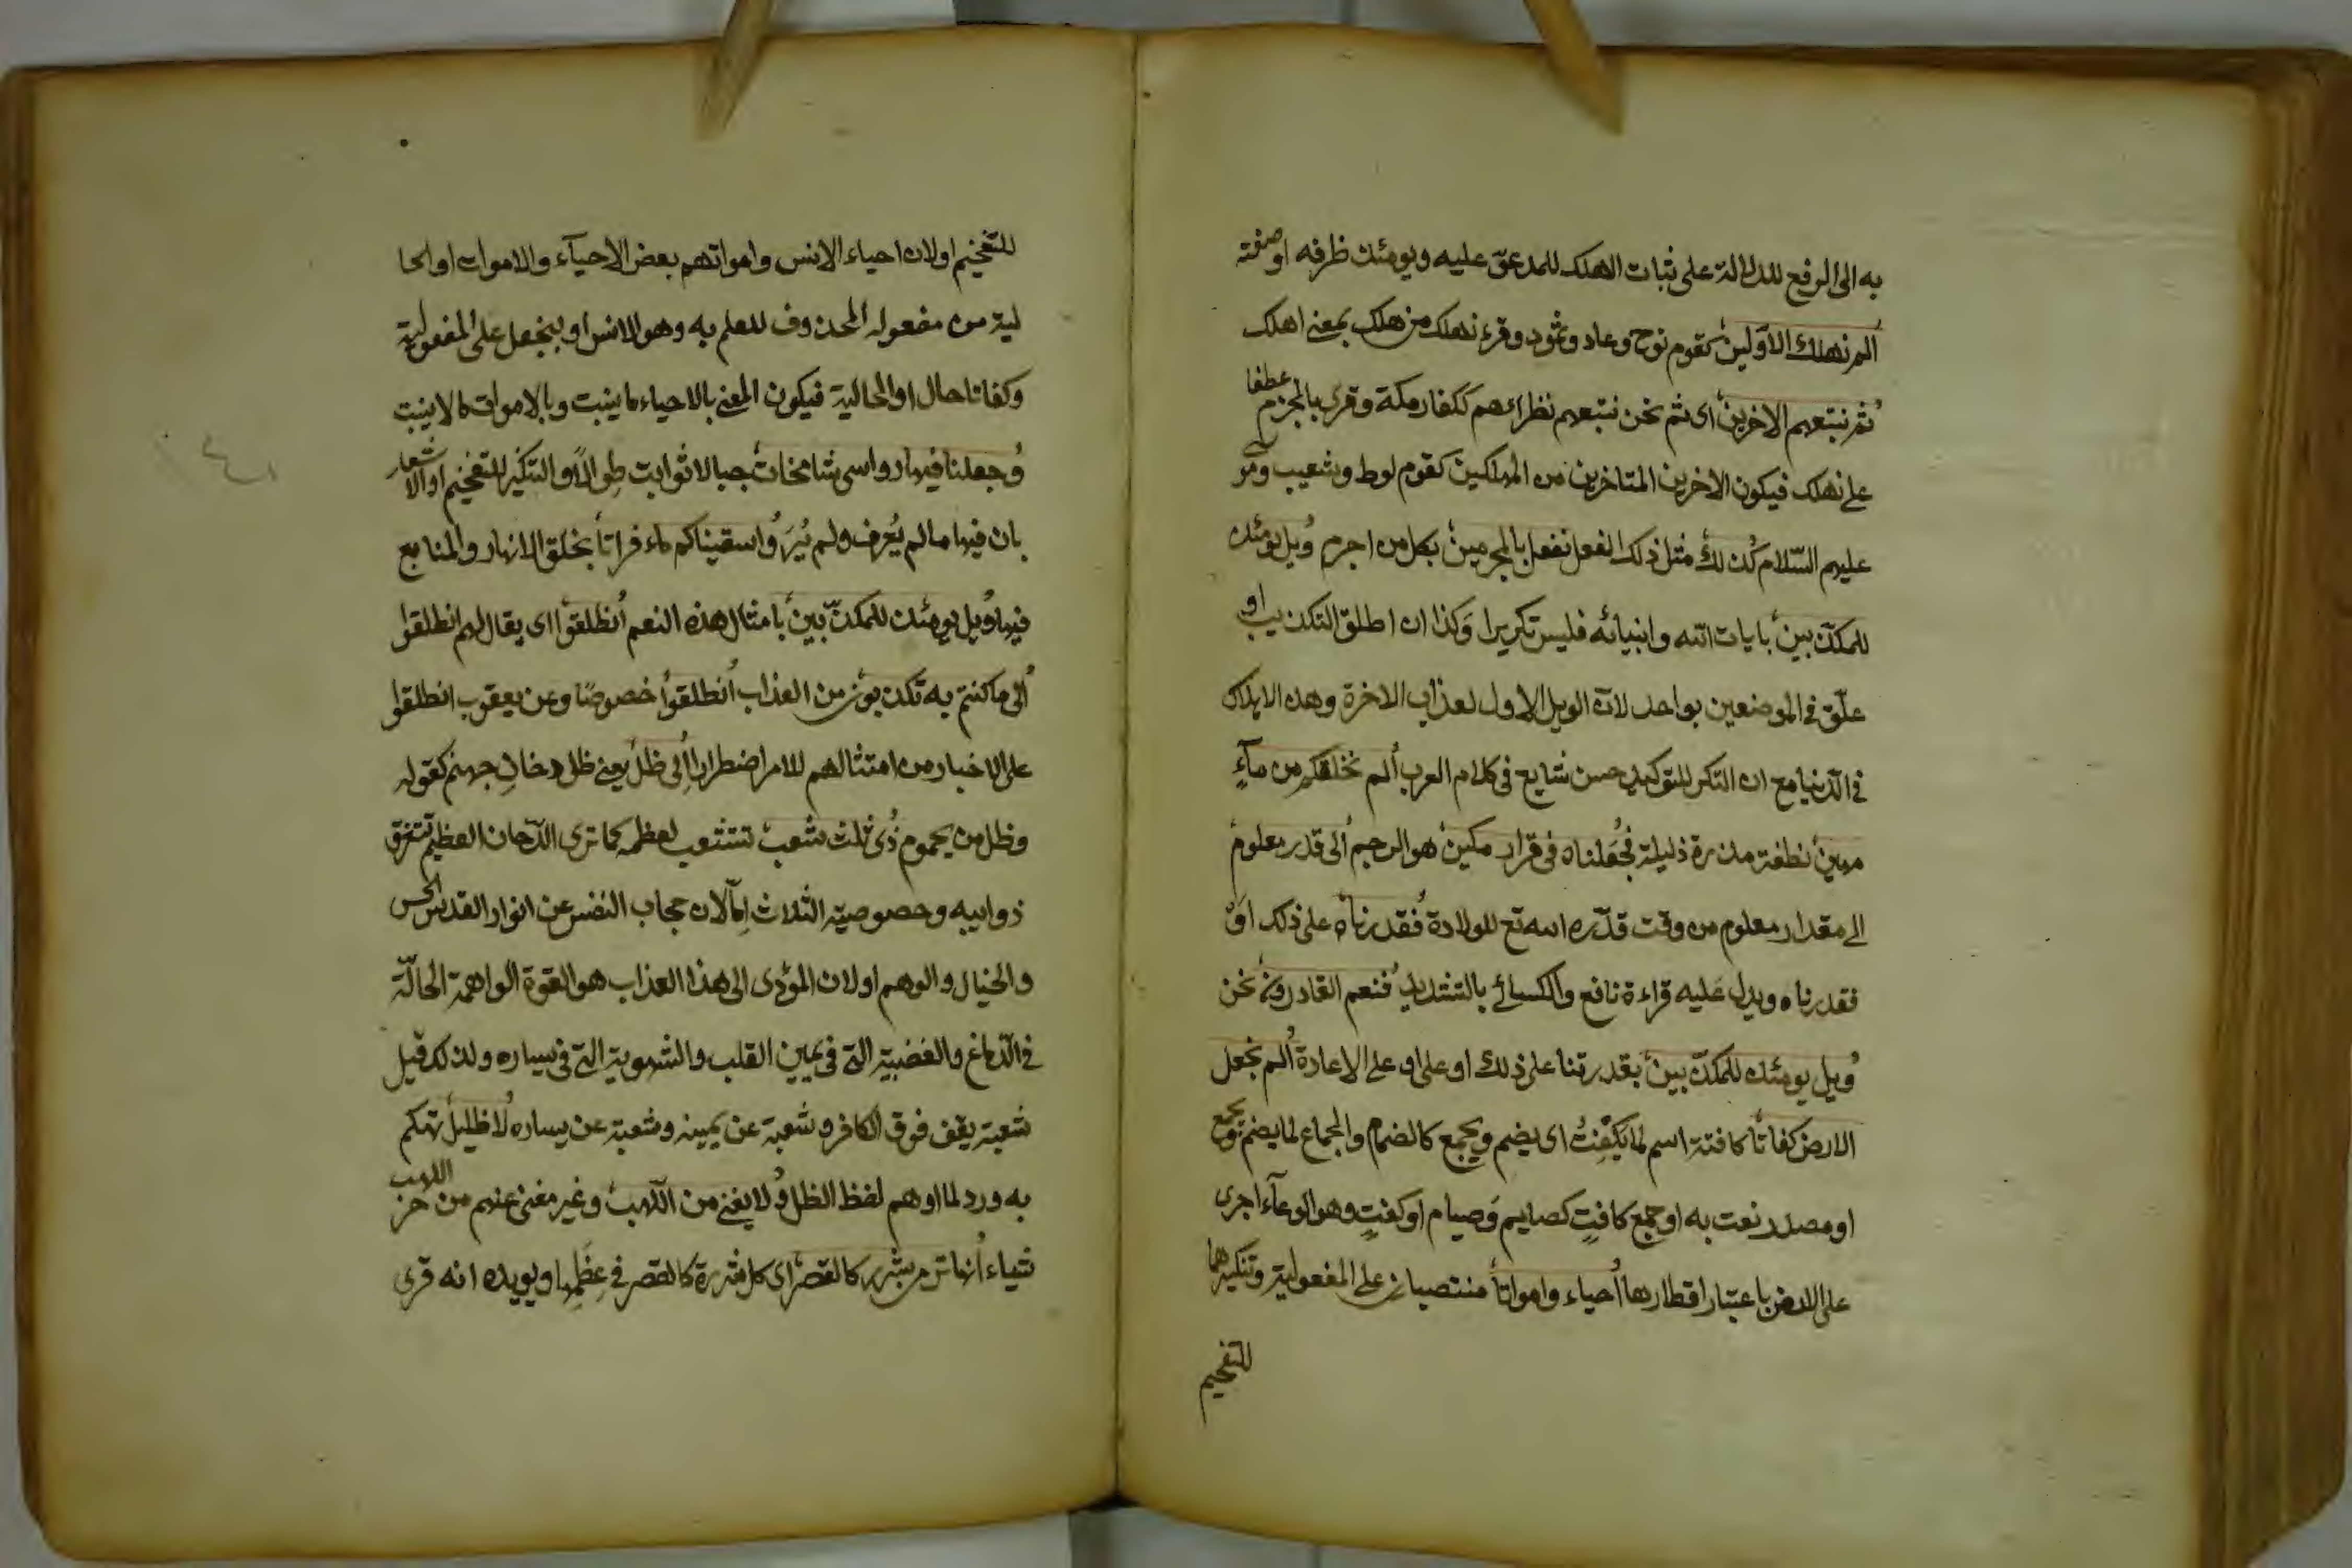 به الى الرفع للدلالة على ثبات الهلك للمدعوّ عليه ويومئذ ظرفه او صفته
الم نهلك الاوّلين كقوم نوح وعاد وثمود وقرء نهلك من هلك بمعنى اهلك
ثم نتبعهم الاخرين اى ثم نحن نتبعهم نظراءهم ككفار مكة وقرى بالجزم عطفا
على نهلك فيكون الاخرين المتاخرين من المهلكين كقوم لوط وشعيب وموسى
عليهم السّلام كذلك مثل ذلك الفعل نفعل بالمجرمين بكل من اجرم ويل يومئذ
للمكذّبين بايات الله وانبيائه فليس تكريرا وَكذا ان اطلق التكذيب او
علّق فى الموضعين بواحد لانّ الويل الاول لعذاب الاخرة وهذه الاهلاك
فى الدّنيا مع ان التكرر للتوكيد حسن شايع فى كلام العرب ألم نخلقكم من مآءٍ
مهين نطفة مذرة ذليلة فجعلناه فى قرار مكين هو الرحم الى قدر معلوم
الى مقدار معلوم من وقت قدّره الله تع للولادة فقدرناه على ذلك اوْ
فقدرناه ويدل عَليه قراءة نافع والكسائى بالتشديد فنعم القادرون نحن
ويل يومئذ للمكذّبين بقدرتنا على ذلك او على او على الاعادة ألم نجعل
الارض كفاتاً كافتة اسم لما يَكْفِتُ اى يضم ويجمع كالضمام والجماع لما يضم ويجمع
او مصدر نعت به او جمع كافتٍ كصايم وَصيام او كفتٍ وهو الوعآء اجرى
على الارض باعتبار اقطارها أحياء وامواتاً منتصبان على المفعولية وتنكيرهما
للتفخيم
للتفخيم او لان احياء الانس وامواتهم بعض الاحيآء والاموات او الحا
لية من مفعوله المحذوف للعلم به وهو الانس او بنجعل على المفعولية
وكفاتا حال او الحالية فيكون المعنى بالاحياء ما ينبت وبالاموات ما لا ينبت
وجعلنا فيها رواسى شامخات جبالا ثوابت طِوالًا والتنكير للتفخيم او الاشعار
بان فيها ما لم يُعرف ولم يُرَ وأسقيناكم ماء فراتاً بخلق الانهار والمنابع
فيها ويل يومئذ للمكذّبين بامثال هذه النعم أنطلقوا اى يقال لهم انطلقوا
ألى ما كنتم به تكذبون من العذاب أنطلقوا خصوصًا وعن يعقوب انطلقوا
على الاخبار من امتثالهم للامر اضطرارا ألى ظل يعنى ظل دخانِ جهنم كقوله
وظل من يحموم ذى ثلث شعب تتشعب لعظمه كما ترى الدّخان العظيم تتفرق
ذوايبه وخصوصية الثلاث إمّا لان حجاب النفس عن انوار القدس الحس
والخيال والوهم او لان المؤدى الى هذا العذاب هو القوة الواهمة الحالّة
فى الدّماغ والغضبية التى فى يمين القلب والشهوية التى فى يساره ولذلك قيل
شعبة يقف فوق الكافر وشعبة عن يمينه وشعبة عن يساره لا ظليل تهكم
به ورد لما اوهم لفظ الظل ولا يغنى من اللّهب وغير مغن عنهم من حر اللهب
شياء أنها ترمى بشرر كالقصر اى كل شررة كالقصر فى عِظَمِها ويويده انه قرى